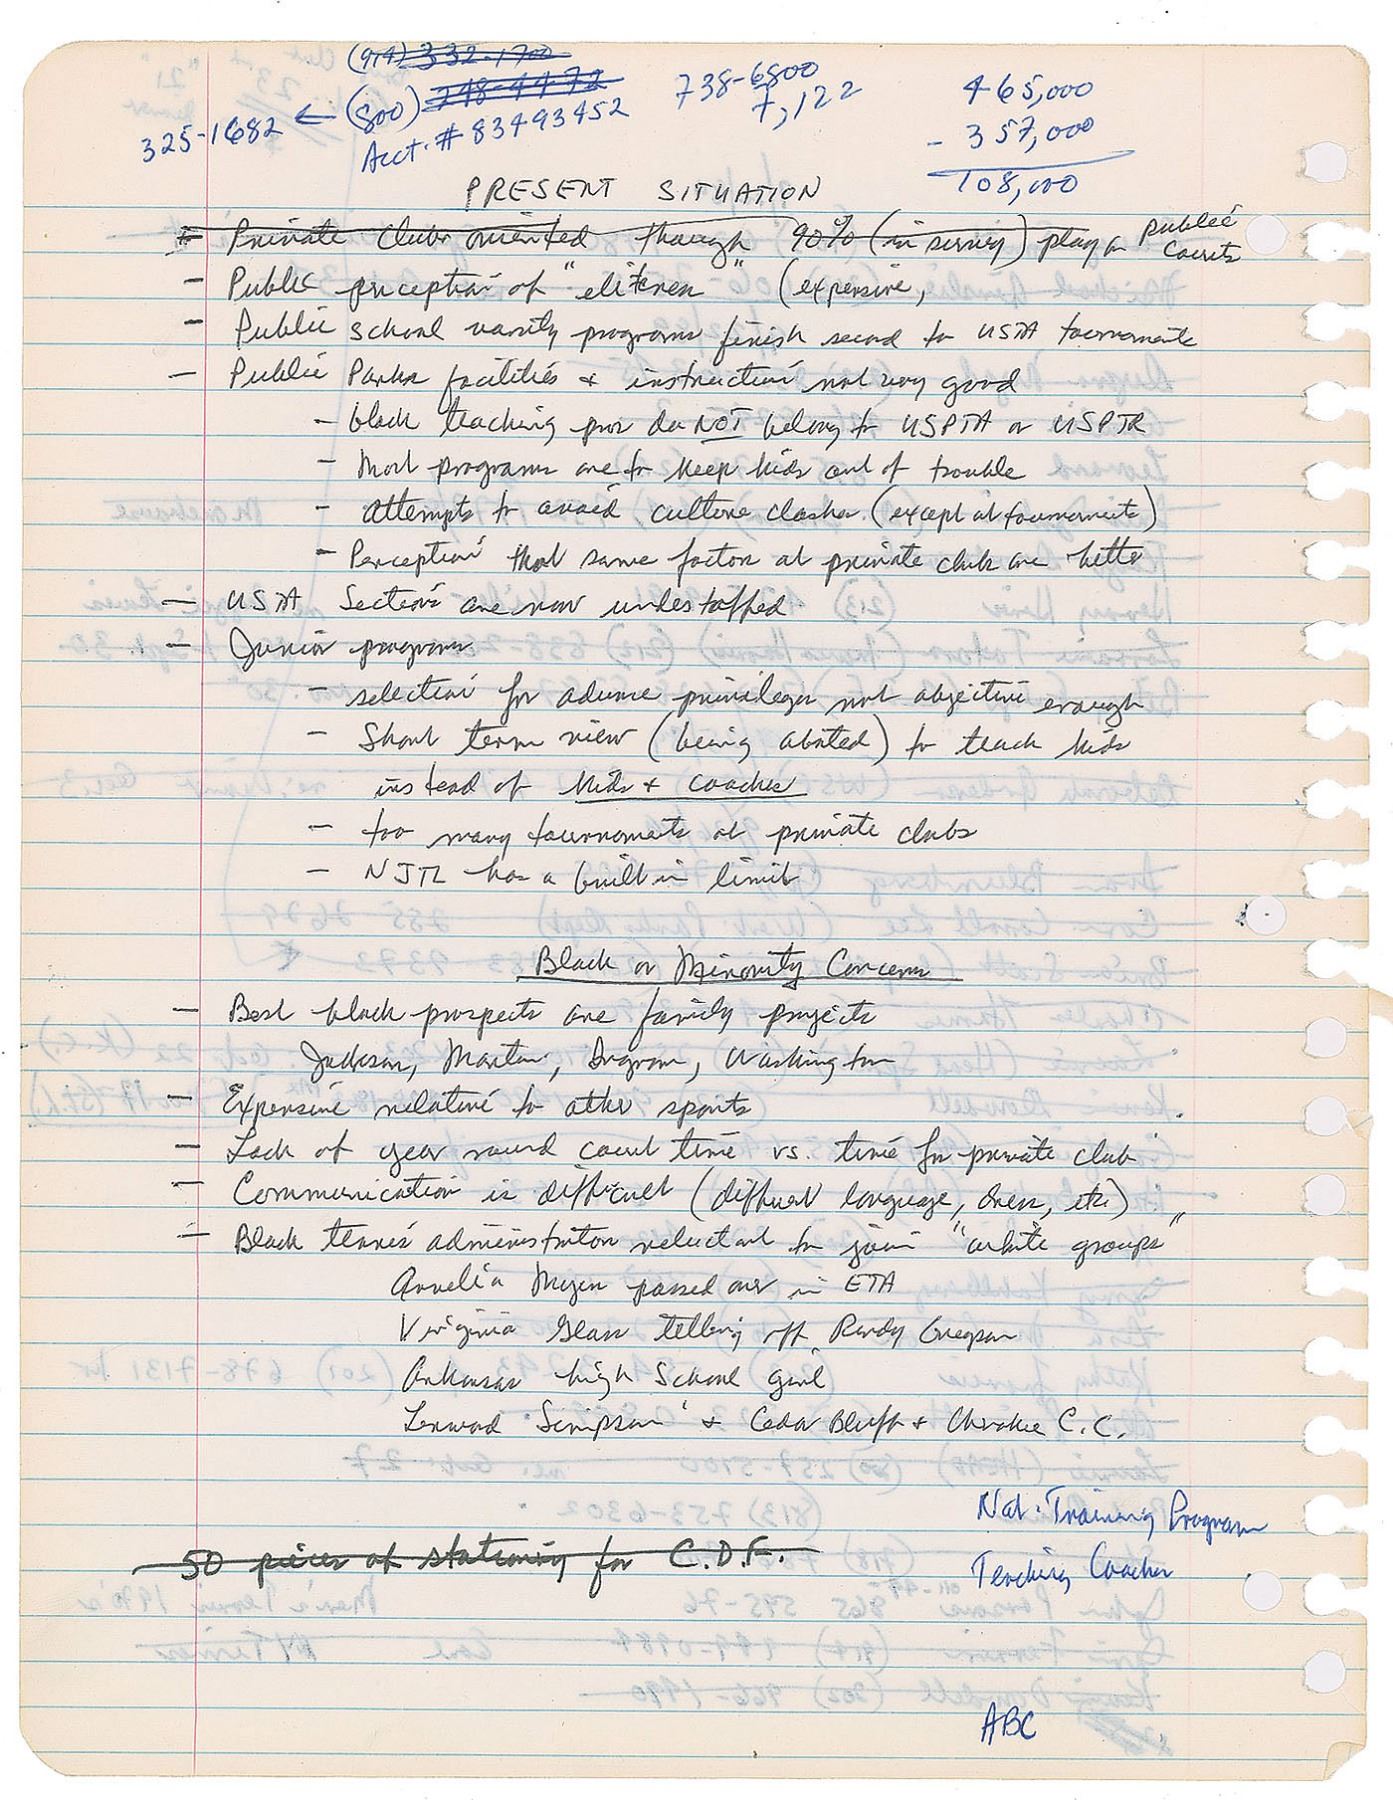 (914) 332-1700
(800) 748-4472
325-1682 ←
Acct. # 83493452
738-6800
7,122
465,000
- 357,000
108,000
PRESENT SITUATION
- Private Clubs oriented though 90% (in survey) play on public courts
- Public perception of "eliteness" (expensive,
- Public school varsity programs finish second to USTA tournaments
- Public Parks facilities & instruction not very good
- black teaching pros do NOT belong to USPTA or USPTR
- Most programs are to keep kids out of trouble
- attempts to avoid culture clashes (except at tournaments)
- Perception that same factors at private clubs are better
- USTA Sections are now understaffed
- Junior programs
- selection for advance privileges not objective enough
- Short term view (being abated) to teach kids
instead of kids & coaches
- too many tournaments at private clubs
- NJTL has a built in limit
Black or Minority Concerns
- Best black prospects are family projects
Jackson, Martin, Ingram, Washington
- Expensive relative to other sports
- Lack of year round court time vs. time for private club
- Communication is difficult (different language, dress, etc)
- Black tennis administrators reluctant to join "white groups"
Myers passed over in ETA
Virginia Glass telling off Randy Gregson
Arkansas high School girl
Lenward Simpson & Cedar Bluff & Cherokee C.C.
Nat. Training Program
50 pieces of stationiy for C.D.F.
Teaching Coaches
ABC